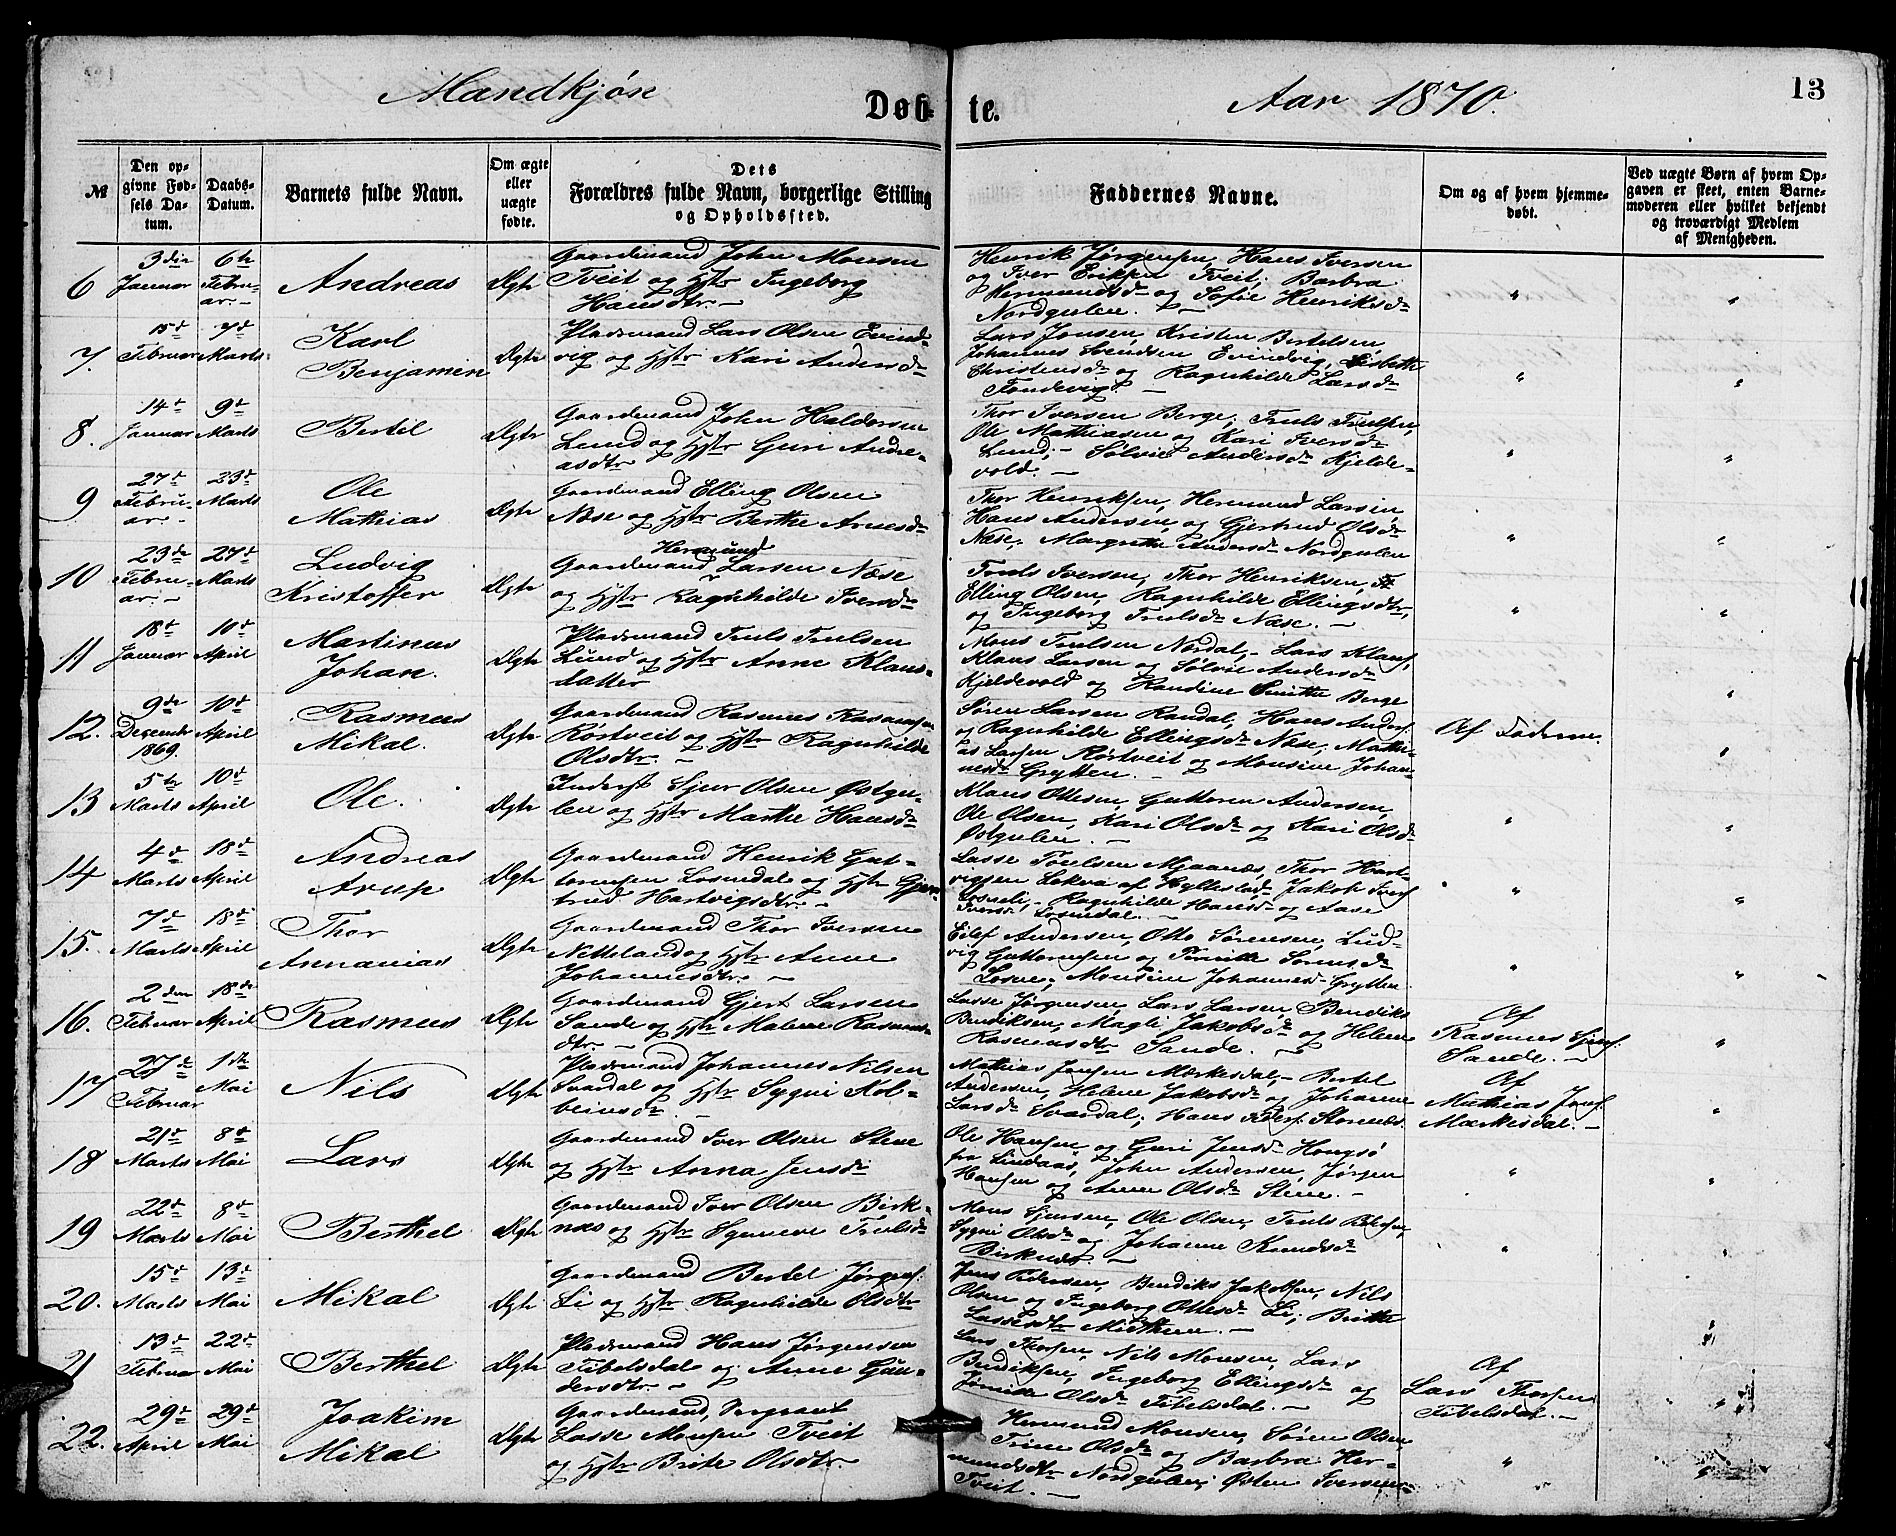 Mandkjøn
Døb-
te.
Aar 1870.
13
№
Den op-
givne Fød-
sels Da-
tum.
Daabs-
Datum.
Barnets fulde Navn.
Om ægte
eller
uægte
fødte.
Dets
Forældres fulde Navn, borgerlige Stilling
og Opholdssted.
Faddernes Navne.
Om og af hvem hjemme-
døbt.
Ved uægte Børn af hvem Op-
gaven er skeet, enten Barne-
moderen eller hvilket bekjendt
og troværdigt Medlem
af Menigheden.
6
3die
Januar
6te
Febru-
ar.-
Andreas
Ægte
Gaardmand John Monsen
Tveit og Hstr Ingeborg
Hansdtr. -
Henrik Jørgensen, Hans Iversen
og Iver Eriksen Tveit; Barbra
Hermundsdr og Sofie Henriksdr
Nordgulen. -
"
"
7.
15de
Februar
7de
Marts.
Karl
Benjamin
Ægte
Pladsmand Lars Olsen Evind-
vig og Hstr Kari Andersdr
Lars Jensen, Kristen Bertelsen
Johannes Svendsen Evindvig, Lisbeth
Christensdr og Ragnhilde Larsdr
Tondevig. -
"
"
8.
14de
Januar
9de
Marts
Bertil
Ægte
Gaardmand John Haldorsen
Lund og Hstr Guri Andre-
asdtr
Thor Iversen Berge, Truls Trulsen,
Ole Mathiasen og Kari Iversdr
Lund, - Sølvie Andersdr Kjelde-
vold. -
"
"
9
27de
Febru-
ar. -
23de
Marts
Ole
Mathias
Ægte
Gaardmand Elling Olsen
Næse og Hstr Berthe Arnesdr
Thor Henriksen, Hermund Larsen
Hans Andersen og Gjertrud Olsdr
Næse, Margrethe Andersdr Nordgulen
"
"
10
23de
Febru-
ar. -
27de
Marts
Ludvig
Kristoffer
Ægte
Hermund
Gaardmand Larsen Næse
og Hstr Ragnhilde Iversdr
Truls Iversen, Thor Henriksen,
Elling Olsen, Ragnhilde Ellingsdtr,
og Ingeborg Trulsdr Næse. -
"
"
11
18de
Januar
10de
April
Martinus
Johan.
Ægte
Pladsmand Truls Trulsen
Lund og Hstr Anne Klaus-
datter
Mons Trulsen Nordal, - Lars Klausf.
Klaus Larsen og Sølvie Andersdr
Kjeldevold og Handine Smith Berge
"
12.
9de
December
1869.
10de
April
Rasmus
Mikal.
Ægte
Gaardmand Rasmus Rasmussen
Rortveit og Hstr Ragnhilde
Olsdtr. -
Søren Larsen Randal, Hans Andersf.
og Ragnhilde Ellingsdr Næse, Mathi-
as Larsen Rørtveit og Monsine Johan-
nesdr Grytten. -
Af Faderen.
"
13
5te
Marts
10de
April
Ole.
Ægte
Inderst Sjur Olsen Østgu-
len og Hstr Marthe Hansdr
Klaus Ottesen, Guttorm Andersen,
Ole Olsen, Kari Olsdr og Kari Olsdr
Østgulen. -
"
"
14
4de
Marts
18de
April
Andreas
Arup
Ægte
Gaardmand Henrik Gut-
tormsen Losnedal og Hstr Gjer-
trud Hartvigsdtr. -
Lasse Truelsen Mjaanæs, Thor Hart-
vigsen Løkra af Hyllestad, Jakob Iversf.
- Ragnhilde Hansdr og Aase
Iversdr Losnedal. -
"
"
15.
7de
Marts
18de
April
Thor
Annanias
Ægte
Gaardmand Thor Iversen
Netteland og Hstr Anne
Johannesdtr. -
Eilef Andersen, Otto Sørensen, Lud-
vig Guttormsen og Sørensdr
Losne, Monsine Johannesdr Grytten.
"
"
16.
2den
Februar
18de
April
Rasmus
Ægte
Gaardmand Gjert Larsen
Sande og Hstr Malene Rasmus-
dtr. -
Lasse Jørgensen, Lars Larsen, Bendiks
Bendiksen, Magle Jakobsdr og Helene
Rasmusdtr Sande. -
Af
Rasmus Gjertsf.
Sande. -
"
17
27de
Februar
1ste
Mai
Nils
Ægte
Pladsmand Johannes Nilsen
Svardal og Hstr Sygni Kol-
beinsdr. -
Mathias Jensen Mærkesdal, - Bertel
Andersen, Helene Jakobsdr og Johanne
Larsdr Svardal; Hans
Af
Mathias Jensf.
Mærkesdal. -
"
18
21de
Marts
8de
Mai
Lars
Ægte
Gaardmand Iver Olsen Stene
og Hstr Anna Jensdr
Ole Hansen og Guri Jensdr Hougsø
fra Lindaas, John Andersen, Jørgen
Hansen og Anne Olsdr Stene. -
"
"
19
22de
Marts
8de
Mai
Berthel
Ægte
Gaardmand Iver Olsen Birk-
næs og Hstr Synneve Trulsdr
Mons Sjursen, Ole Olsen, Truls
Sygni Olsdr og Johanne Knudsdr
Birknæs. -
"
"
20.
15de
Marts
13de
Mai
Mikal
Ægte
Gaardmand Bertel Jørgensf.
Li og Hstr Ragnhilde Olsdtr
Jens Pedersen, Bendiks Jakobsen, Nils
Olsen og Ingeborg Ottesdr Li; Britha
Lassesdtr Midttun. -
"
21
13de
Februar
22de
Mai
Berthel
Ægte
Pladsmand Hans Jørgensen
Tibelsdal og Anne Gun-
dersdtr. -
Lars Thorsen, Nils Monsen, Lars
Bendiksen, Ingeborg Ellingsdr og
Olsdr Tibelsdal. -
Af
Lars Thorsen
Tibelsdal. -
"
22.
29de
April
29de
Mai
Joakim
Mikal
Ægte
Gaardmand, Sergeant
Lasse Monsen Tveit
og Hstr Brite Olsdtr.
Hermund Monsen, Søren Olsen
Trine Olsdr og Barbra Her-
mundsdtr Nordgulen; Østen Iversen
Tveit. -
"
"